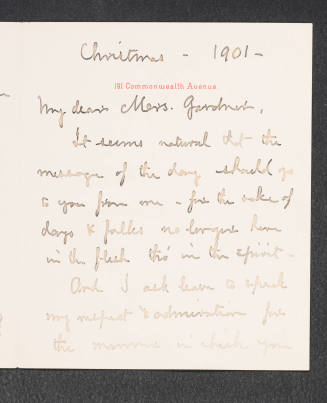 Christmas - 1901 -
191 Commonwealth Avenue.
My dear Mrs. Gardner,
It seems natural that the
message of the day should go
to you from me - for the sake of
days & folks no longer here
in the flesh tho' in the spirit -
And I ask leave to speak
my respect & admiration for
the manner in which you